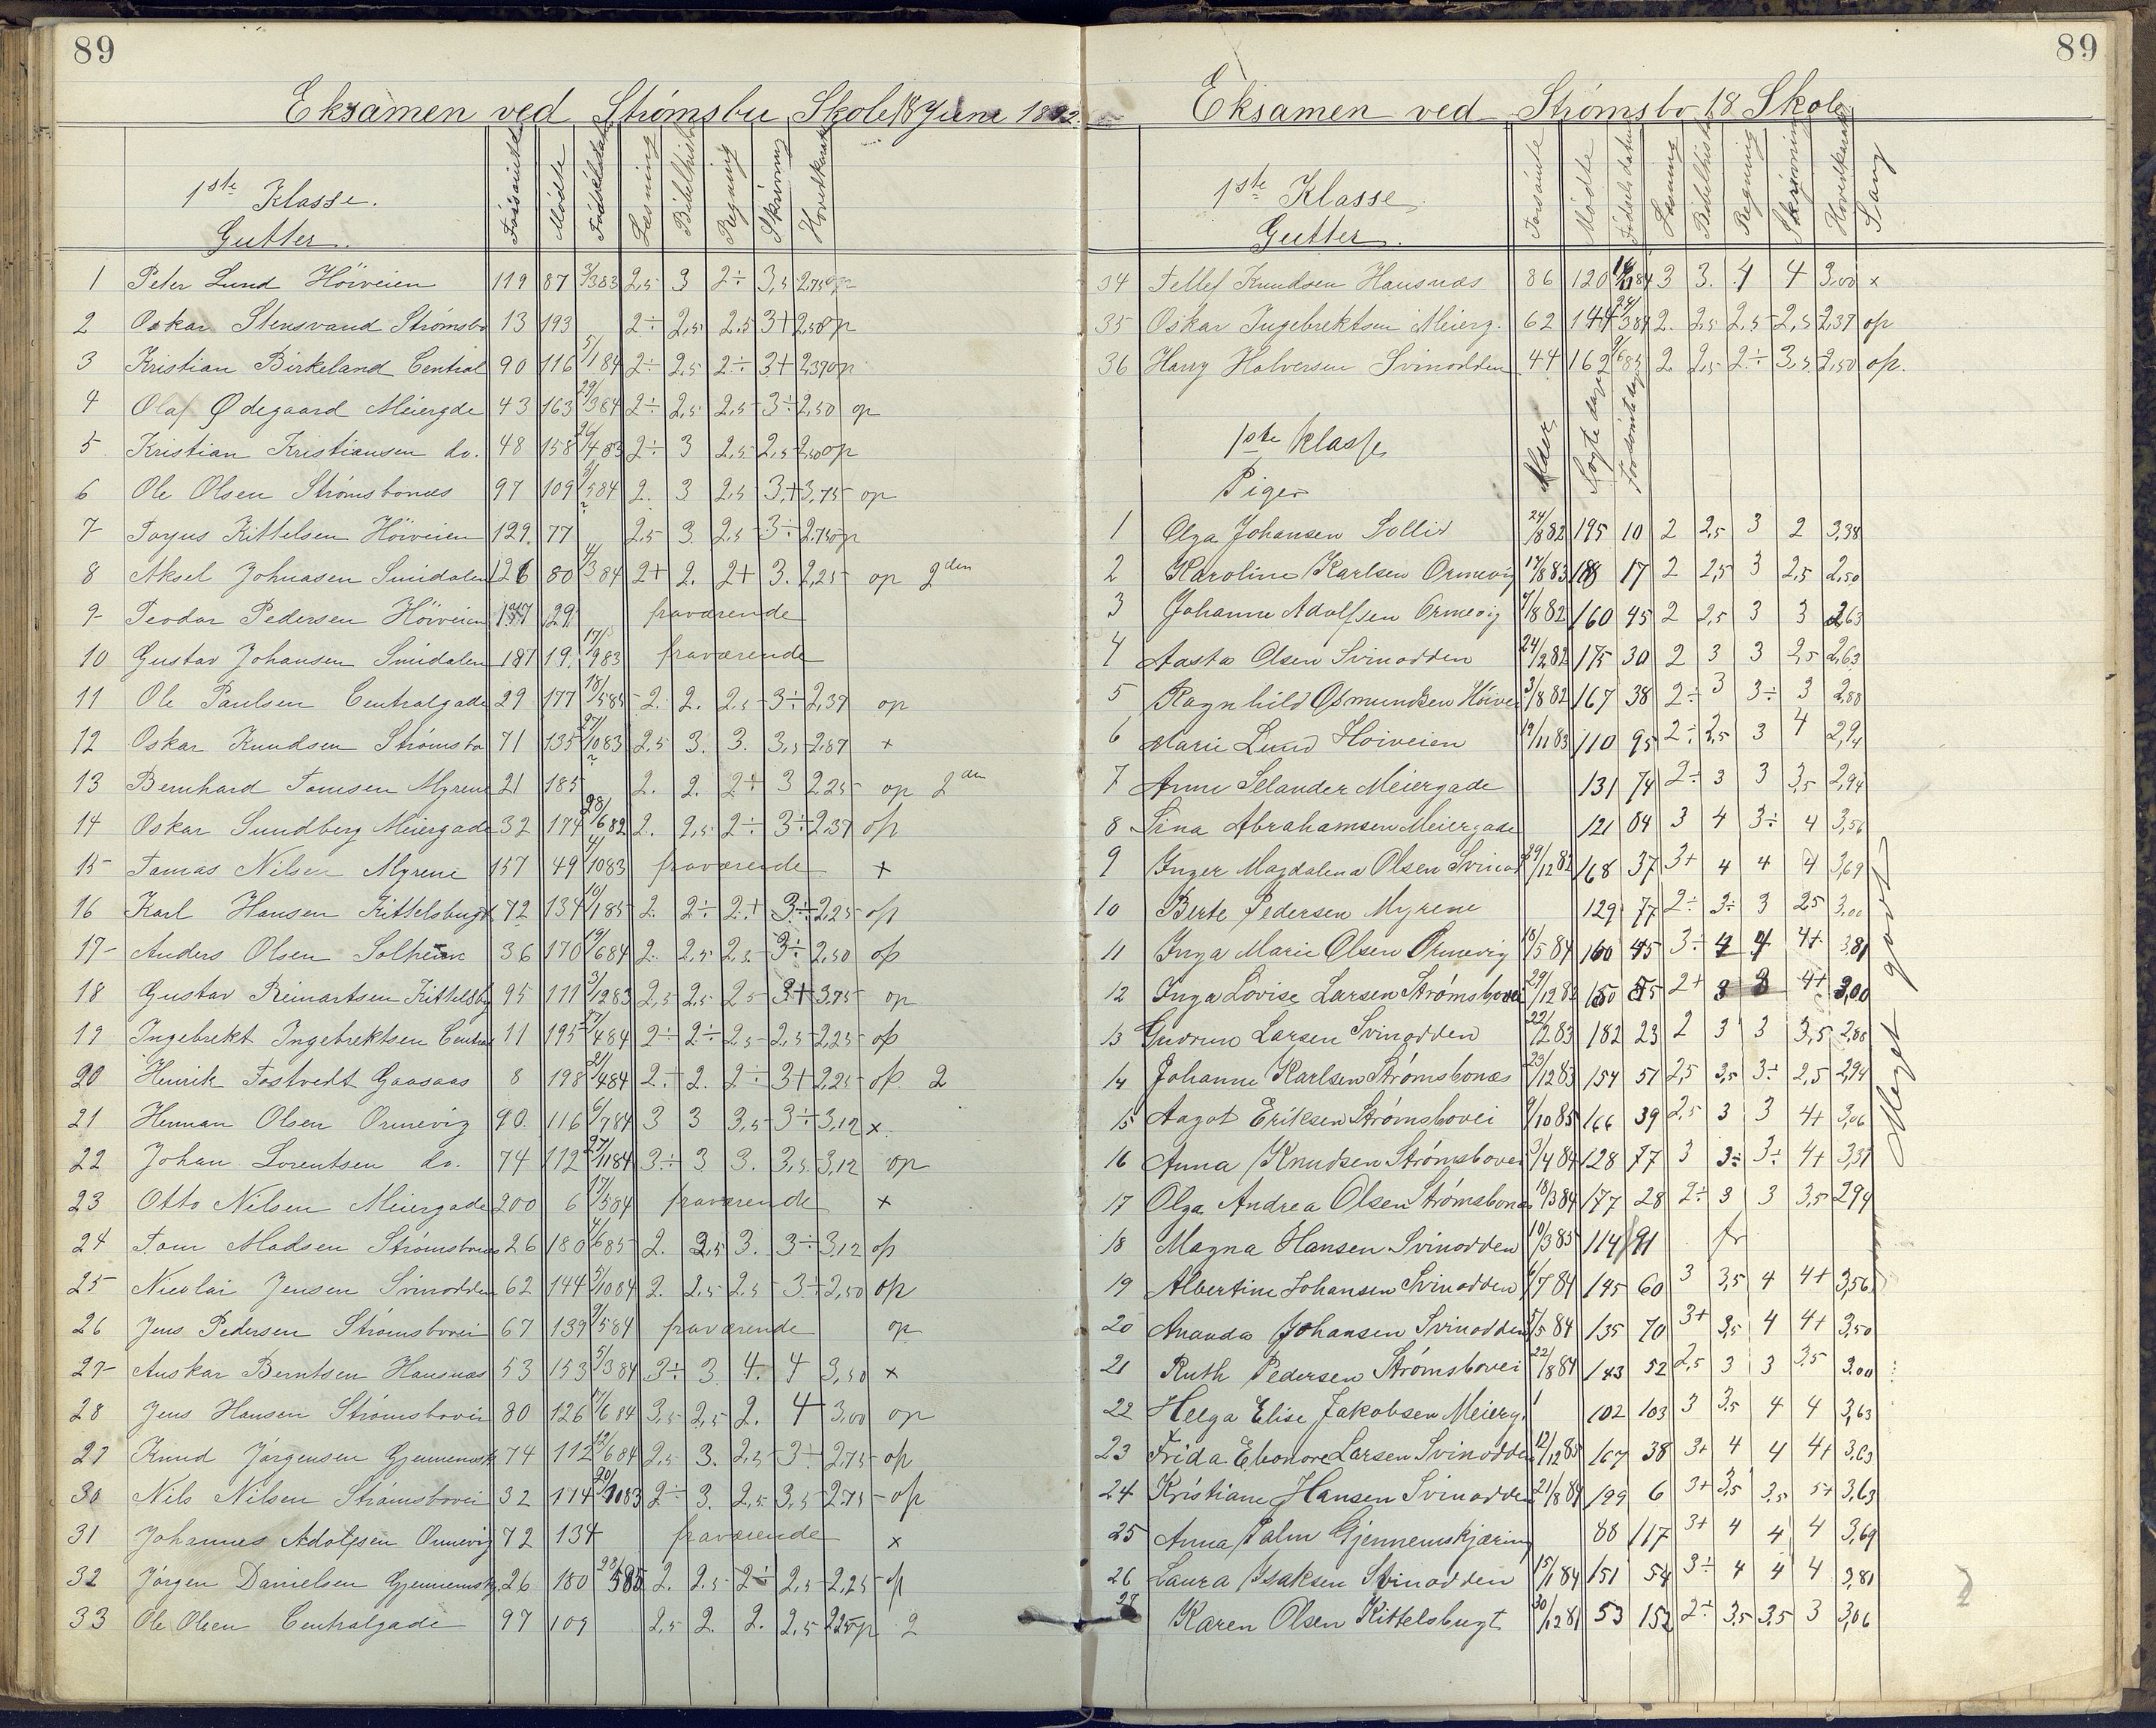 89
Eksamen ved Strømsbu Skole 18 Juni 1892.
1ste Klasse.
Gutter.
Forsömte Mödte Födselsdatum Læsning Bibelhist Regning Skrivning Hovedkarakt
1 Peter Lund Höiveien 119 87 3/383 2,5 3 2÷ 3,5 2,75 op
2 Oskar Stensvand Strømsbo 13 193 2÷ 2,5 2,5 3+ 2,50 op
3 Kristian Birkeland Central 90 116 5/184 2÷ 2,5 2÷ 3+ 2,37 op
4 Olaf Ødegaard Meiergde 43 163 29/384 2÷ 2,5 2,5 3÷ 2,50 op
5 Kristian Kristiansen do. 48 158 26/483 2÷ 3 2,5 2,5 2,50 op
6 Ole Olsen Strømsbonæs 97 109 6/584 2. 3 2,5 3,+ 3,75 op
7 Torjus Kittelsen Höiveien 129. 77 ? 2,5 3 2,5 3÷ 2,75 op
8 Aksel Johnasen Smidalen 126 80 4/384 2+ 2. 2+ 3. 2,25 op 2den
9 Teodor Pedersen Höiveien 29 fraværende
10 Gustav Johansen Smidalen 187 19. 17/983 fraværende
11 Ole Paulsen Centralgade 29 177 18/585 2. 2. 2,5 3÷ 2,37 op
12 Oskar Knudsen Strømsbo 71 135 27/1083 2,5 3. 3. 3,5 2,87 +
13 Bernhard Tomsen Myrene 21 185 ? 2. 2. 2÷ 3 2,25 op 2den
14 Oskar Sundberg Meiergade 32 174 28/682 2. 2,5 2÷ 3÷ 2,37 op
15 Tomas Nilsen Myrene 157 49 4/1083 fraværende +
16 Karl Hansen Kittelsbugt 72 134 10/185 2. 2÷ 2+ 3÷ 2,25 op
17 Anders Olsen Solheim 36 170 19/684 2. 2,5 2,5 3÷ 2,50 op
18 Gustav Reinartsen Kittelsbg 95 111 3/1283 2,5 2,5 2,5 3+ 3,75 op
19 Ingebrekt Ingebrektsen Central 11 195 17/484 2÷ 2÷ 2,5 2,5 2,25 op
20 Henrik Tostvedt Gaasaas 8 198 2/484 2+ 2. 2÷ 3+ 2,25 op 2
21 Herman Olsen Ormevig 90. 116 6/784 3 3 3,5 3÷ 3,12 x
22 Johan Lorentsen do. 74 112 27/1184 3÷ 3 3. 3,5 3,12 op
23 Otto Nilsen Meiergade 200 6 17/584 fraværende +
24 Tom Madsen Strømsbonæs 26 180 4/685 2. 2,5 3. 3÷ 3,12 op
25 Nicolai Jensen Svinodden 62 144 5/1084 2. 2,5 2,5 3÷ 2,50 op
26 Jens Pedersen Strømsbovei 67 139 9/584 fraværende op
27 Anskar Berntsen Hansnæs 53 153 5/384 3÷ 3 4. 4 3,50 x
28 Jens Hansen Strømsbovei 80 126 17/684 3,5 2,5 2. 4 3,00 op
29 Knud Jörgensen Gjennemsk 74 112 12/684 2,5 3. 2,5 3÷ 2,75 op
30 Nils Nilsen Strømsbovei 32 174 20/1083 2÷ 3. 2,5 3,5 2,75 op
31 Johannes Adolfsen Ormevig 72 134 fraværende x
32 Jörgen Danielsen Gjennemskj. 26 180 28/585 2. 2,5 2÷ 2,5 2,25 op
33 Ole Olsen Centralgade 97 109 2,5 2. 2. 2,5 2,25 op 2
89
Eksamen ved Strømsbo 18 Skole
1ste Klasse
Gutter.
Forsömte Mödte Födselsdatum Læsning Bibelhist Regning Skrivning Hovedkarakt Sang
34 Tellef Knudsen Hansnæs 86 120 3 3. 4 4 3,00 x
35 Oskar Ingebrektsen Meierg. 62 144 24/384 2. 2,5 2,5 2,5 2,37 op
36 Harry Halversen Svinodden 44 162 9/685 2. 2,5 2÷ 3,5 2,50 op.
1ste Klasse
Piger
Alder Sögte dage Forsömte dage
1 Olga Johansen Sollid 24/882 195 10 2 2,5 3 2 3,38
2 Karoline Karlsen Ormevig 17/883 188 17 2 2,5 3 2,5 2,50
3 Johanne Adolfsen Ormevig 7/882 160 45 2 2,5 3 3 2,63
4 Aasta Olsen Svinodden 24/282 175 30 2 3 3 2,5 2,63
5 Ragnhild Osmundsen Höivei 3/882 167 38 2÷ 3 3÷ 3 2,88
6 Marie Lund Hoiveien 19/1183 110 95 2÷ 2,5 3 4 2,94
7 Anne Selander Meiergade 131 74 2÷ 3 3 3,5 2,94
8 Sina Abrahamsen Meiergade 121 84 3 4 3÷ 4 3,56
9 Inger Magdalena Olsen Svinod 29/1282 168 37 3+ 4 4 4 3,69
10 Berte Pedersen Myrene 129 77 2÷ 3÷ 3 2,5 3,00
11 Inga Marie Olsen Ormevig 18/584 160 45 3÷ 4 4 4+ 3,81
12 Inga Lovise Larsen Strømsbovei 29/1283 150 55 2+ 3 3 4+ 3,00
13 Gudrun Larsen Svinodden 22/283 182 23 2 3 3 3,5 2,88
14 Johanne Karlsen Strømsbonæs 23/1283 154 51 2,5 3,5 3÷ 2,5 2,94
15 Aagot Eriksen Strømsbovei 9/1085 166 39 2,5 3 3 4+ 3,06
16 Anna Knudsen Strømsbovei 3/484 128 77 3 3÷ 3÷ 4+ 3,31
17 Olga Andrea Olsen Strømsbonæs 18/384 177 28 2÷ 3 3 3,5 2,94
18 Magna Hansen Svinodden 10/385 114 91 fr
19 Albertine Johansen Svinodden 6/784 145 60 3 3,5 4 4+ 3,56
20 Ananda Johansen Svinodden 5/584 135 70 3+ 3,5 4 4+ 3,50
21 Ruth Pedersen Strømsbovei 22/884 143 52 2,5 3 3 3,5 3,00
22 Helga Elise Jakobsen Meierg. 102 103 3 3,5 4 4 3,63
23 Frida Elonore Larsen Svinodden 12/1283 167 38 3+ 4 4 4+ 3,63
24 Kristiane Hansen Svinodden 21/884 199 6 3+ 3,5 3,5 5+ 3,63
25 Anna Palm Gjennemskjæring 88 117 3+ 4 4 4 3,69
26 Laura Isaksen Svinodden 15/184 151 54 3÷ 4 4 4 3,81
27 Karen Olsen Kittelsbugt 30/1281 53 152 2÷ 3,5 3,5 3 3,06
Meget godt
2